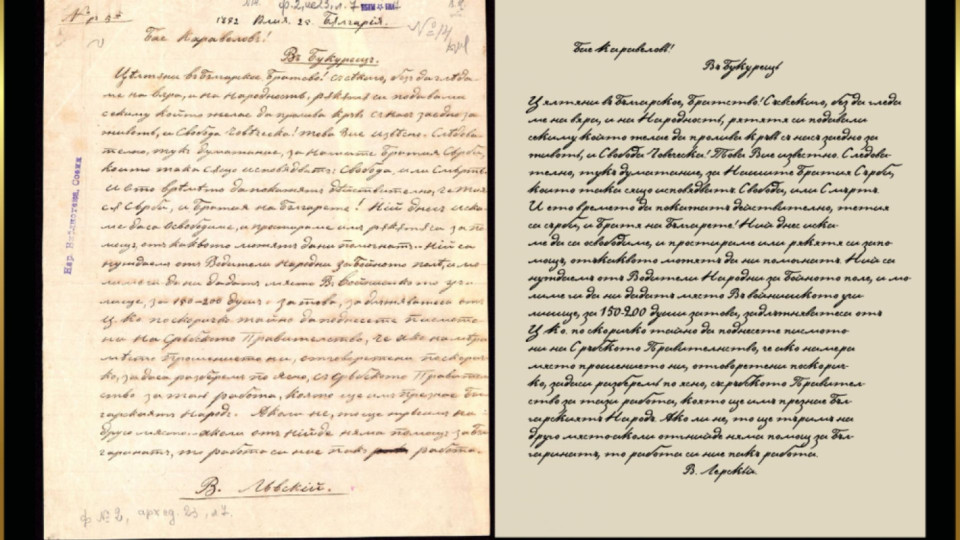 ф. 2, л. 7
№
1872 Юлия 20. Бѫлгарiя.
Бае Каравеловъ!
Въ Букурещъ.
Цѣлта ни въ бѫлгарско Братство! съ секиго, безъ да гледа-
ме на вяра, и на народность, рѫкѫта си подавами
секиму който желае да пролива кръвъ с насъ заедно за
животъ, и Свобода Человѣческа! Това Вие известно. Следова-
телно, тукъ думатание, за Нашите Братия Сърби,
които така сѫщо исповѣдватъ: Свобода, или Смърть.
И ето врѣмето да покажатъ дѣйствително, че тия
сѫ Сърби, и братия на Бѫлгарете! Ний днесъ иска-
ме да се освободиме, и простираме имъ рѫкѫта си за по-
мощъ, отъ каквото можятъ да ни помогнатъ. Ний са
нуждаемъ отъ Водители Народни за бойното поле, и мо-
лиме ги да ни дадатъ място Въ войнишкото учи-
лище, за 150-200 души за това, задлъжнявате са отъ
Ц. К. по скоричко тайно да поднесете писмото
ни на Сръбското Правителство, че ако намери
място прошението ни, отговорете ни поскорич-
ко, за да са разберемъ по ясно, съ сръбското Правител-
ство за таи работа, която ще имъ признае Бѫл-
гарскиятъ Народъ. Ако ли не, то ще търсимъ на
друго място ако ли отъ нийде няма помощъ за Бѫл-
гаринатъ, то работа си ние пакъ работа.
В. Львскiй.
ф. № 2, арх. ед. 23, л. 7.
Нар. Библиотека, София
Бае Каравеловъ!
Въ Букурещъ
Цѣлта ни въ Бѫлгарско, Братство! Съ секиго, без да гледа
ме на вяра, и на Народность, рѫтѫта си подавами
секиму който желае да пролива кръвъ с насъ заедно за
животъ, и Свобода Человеческа! Това Вие известно. Следова-
телно, тукъ думатание, за Нашите Братия Сърби,
които така сѫщо исповядватъ Свобода, или Смърть.
И ето времето да покажатъ действително, че тия
са сърби, и братя на Бѫлгарете! Ний днес иска-
ме да са освободиме, и простираме или рѫкята си запо-
мощъ, отъ каквото можятъ да ни помогнатъ. Ний са
нуждаемъ отъ Водители Народни за бойното поле, и мо-
лиме ги да ни дадатъ място Въ войнишкото учи
лище, за 150-200 души затова, задлъжнявате са отъ
Ц. К. по скоричко тайно да поднесете писмото
ни на Сръбското Правителство, че ако намери
място прошението ни, отговорете ни поскорич-
ко, за да са разберемъ по ясно, съ сръбското Правител
ство за тази работа, която ще имъ признае Бъл
гарскиятъ Народъ. Ако ли не, то ще търсимъ на
друго място ако ли отъ нийде няма помощ за Бъл
гаринатъ, то работа си ние пакъ работа.
В. Лерскiй.